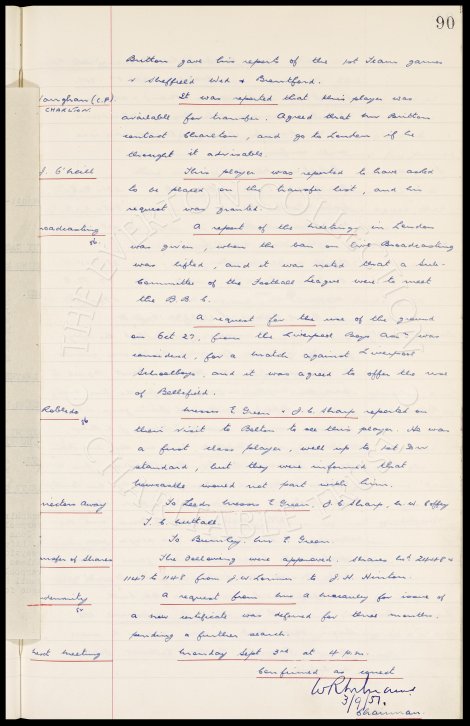 90
Britton gave his reports of the 1st Team games
v Sheffield Wed & Brentford.
Vaughan (C.F.) It was reported that this player was
CHARLTON.
available for transfer. Agreed that Mr Britton
contact Charlton, and go to London if he
thought it advisable.
J. O'Neill This player was reported to have asked
to be placed on the transfer list, and his
request was granted.
roadcasting A report of the meetings in London
was given, when the ban on Live Broadcasting
was lifted, and it was noted that a Sub-
Committee of the Football League were to meet
the B.B.C.
A request for the use of the ground
on Oct 27, from the Liverpool Boys Assn was
considered, for a match against Liverpool
Schoolboys, and it was agreed to offer the use
of Bellefield.
Robledo Messrs E Green & J. C. Sharp reported on
their visit to Bolton to see this player. He was
a first class player, well up to 1st Divn
standard, but they were informed that
Newcastle would not part with him.
irectors Away To Leeds Messrs E Green, J. C Sharp, N. W Coffey
T. C. Nuttall.
To Burnley. Mr E Green.
ansfer of Shares The following were approved. Shares No. 2448 &
1147 to 1148 from J. W. to J. H.
ndemnity A request from for issue of
a new certificate was deferred for three months.
pending a further search.
Next Meeting Monday Sept 3rd at 4 p.m.
Confirmed as correct
3/9/51.
Chairman.
THE EVERTON COLLECTION
CHARITABLE TRUST